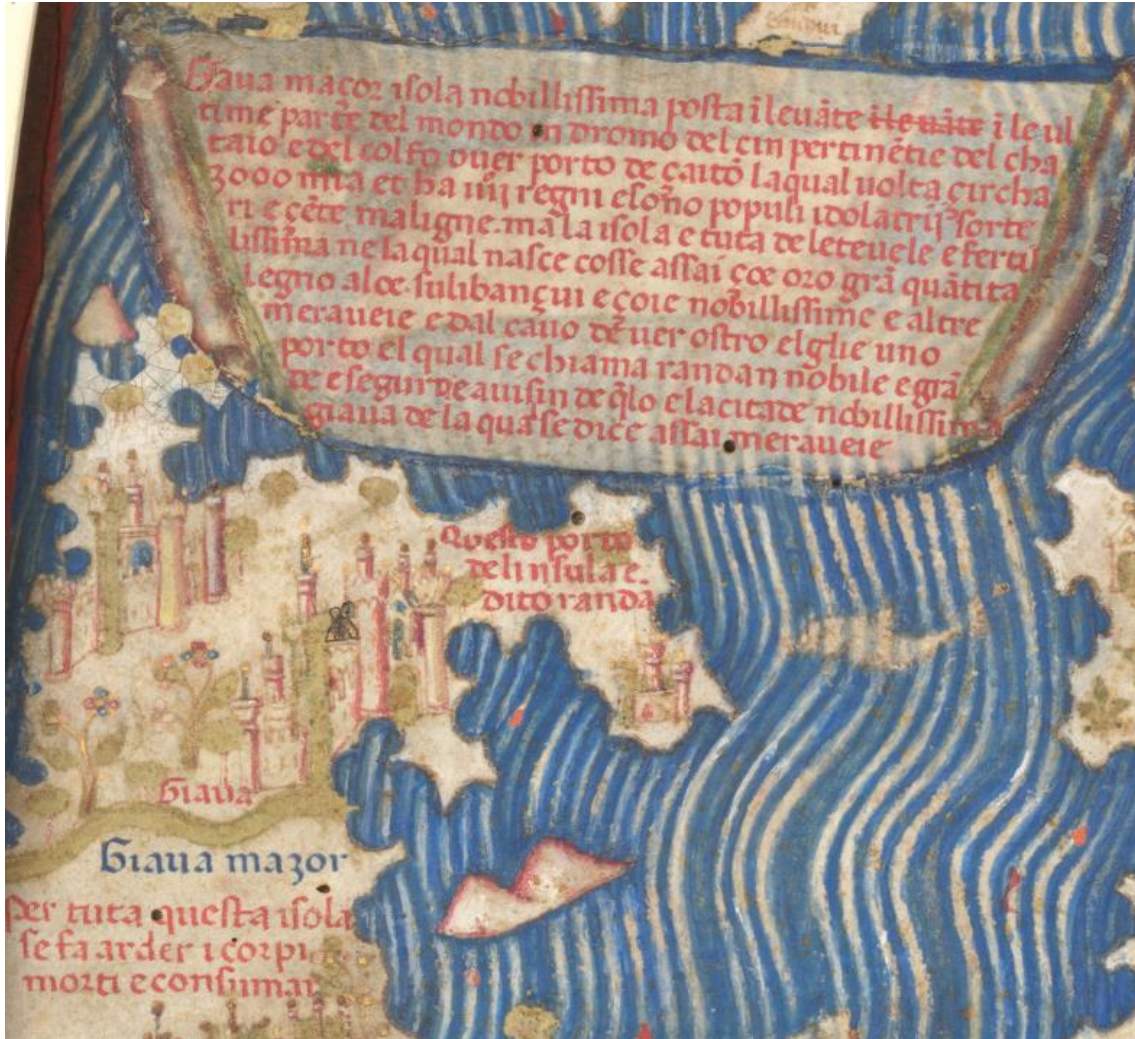 Giava maçor isola nobillissima posta ĩ levãte ĩ levãte ĩ le ul
time parte del mondo in dromo del cin pertinẽtie del cha
taio e del colfo over porto de çaitõ la qual volta çircha
3000 mia et ha iiij regni e sono populi idolatrij sorte
ri e çẽte maligne. ma la isola e tuta deletevele e fertil
lissima ne la qual nasce cosse assai çoe oro grã quãtita
legno aloe sulibançui e çoie nobillissime e altre
meraveie e dal cavo de ver ostro el glie uno
porto el qual se chiama randan nobile e grã
de e seguire avisin de q̃lo e la citade nobillissima
giava de la qua se dice assai meraveie
Questo porto
de linsula e.
dito randã
Giava
Giava mazor
Per tuta questa isola
se fa arder i corpi
morti e consumar